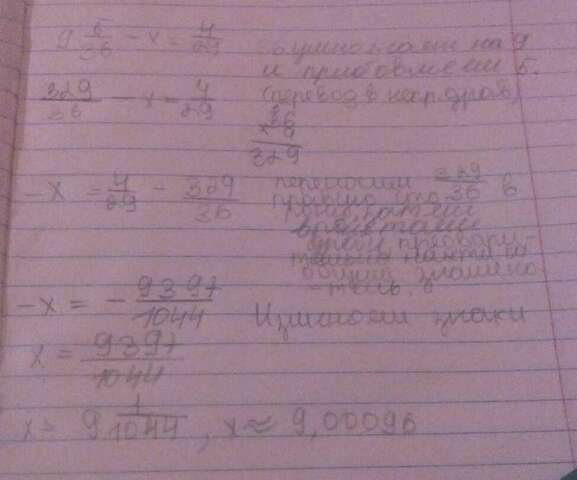 9 5/36 - x = 4/29 умножаем на 9
и прибавляем 5.
329/36 - x = 4/29 (перевод в непр.драб)
36
× 9
329
-x = 4/29 - 329/36 переносим 329/36 в
правую
дроби, предвари-
тельно найти
общий знамена-
тель.
-x = - 9397/1044 Изменяем знаки
x = 9397/1044
x = 9 1/1044, x ≈ 9,00096